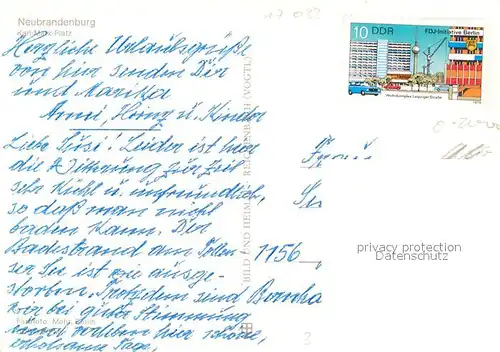 Neubrandenburg
Karl-Marx-Platz
Herzliche Urlaubsgrüße
von hier senden Dir
und Marika
Anni, Heinz u. Kinder
Liebe Susi! Leider ist hier
die Witterung zur Zeit
sehr kühl u. unfreundlich,
so daß man nicht
baden kann. Der
Badestrand am Tollen-
ser See ist wie ausge-
storben. Trotzdem sind
wir bei guter Stimmung
und verleben hier schöne,
erholsame Tage,
BILD UND HEIMAT REICHENBACH (VOGTL)
10 DDR
FDJ-Initiative Berlin
Wohnkomplex Leipziger Straße
1156
privacy protection
Datenschutz
3